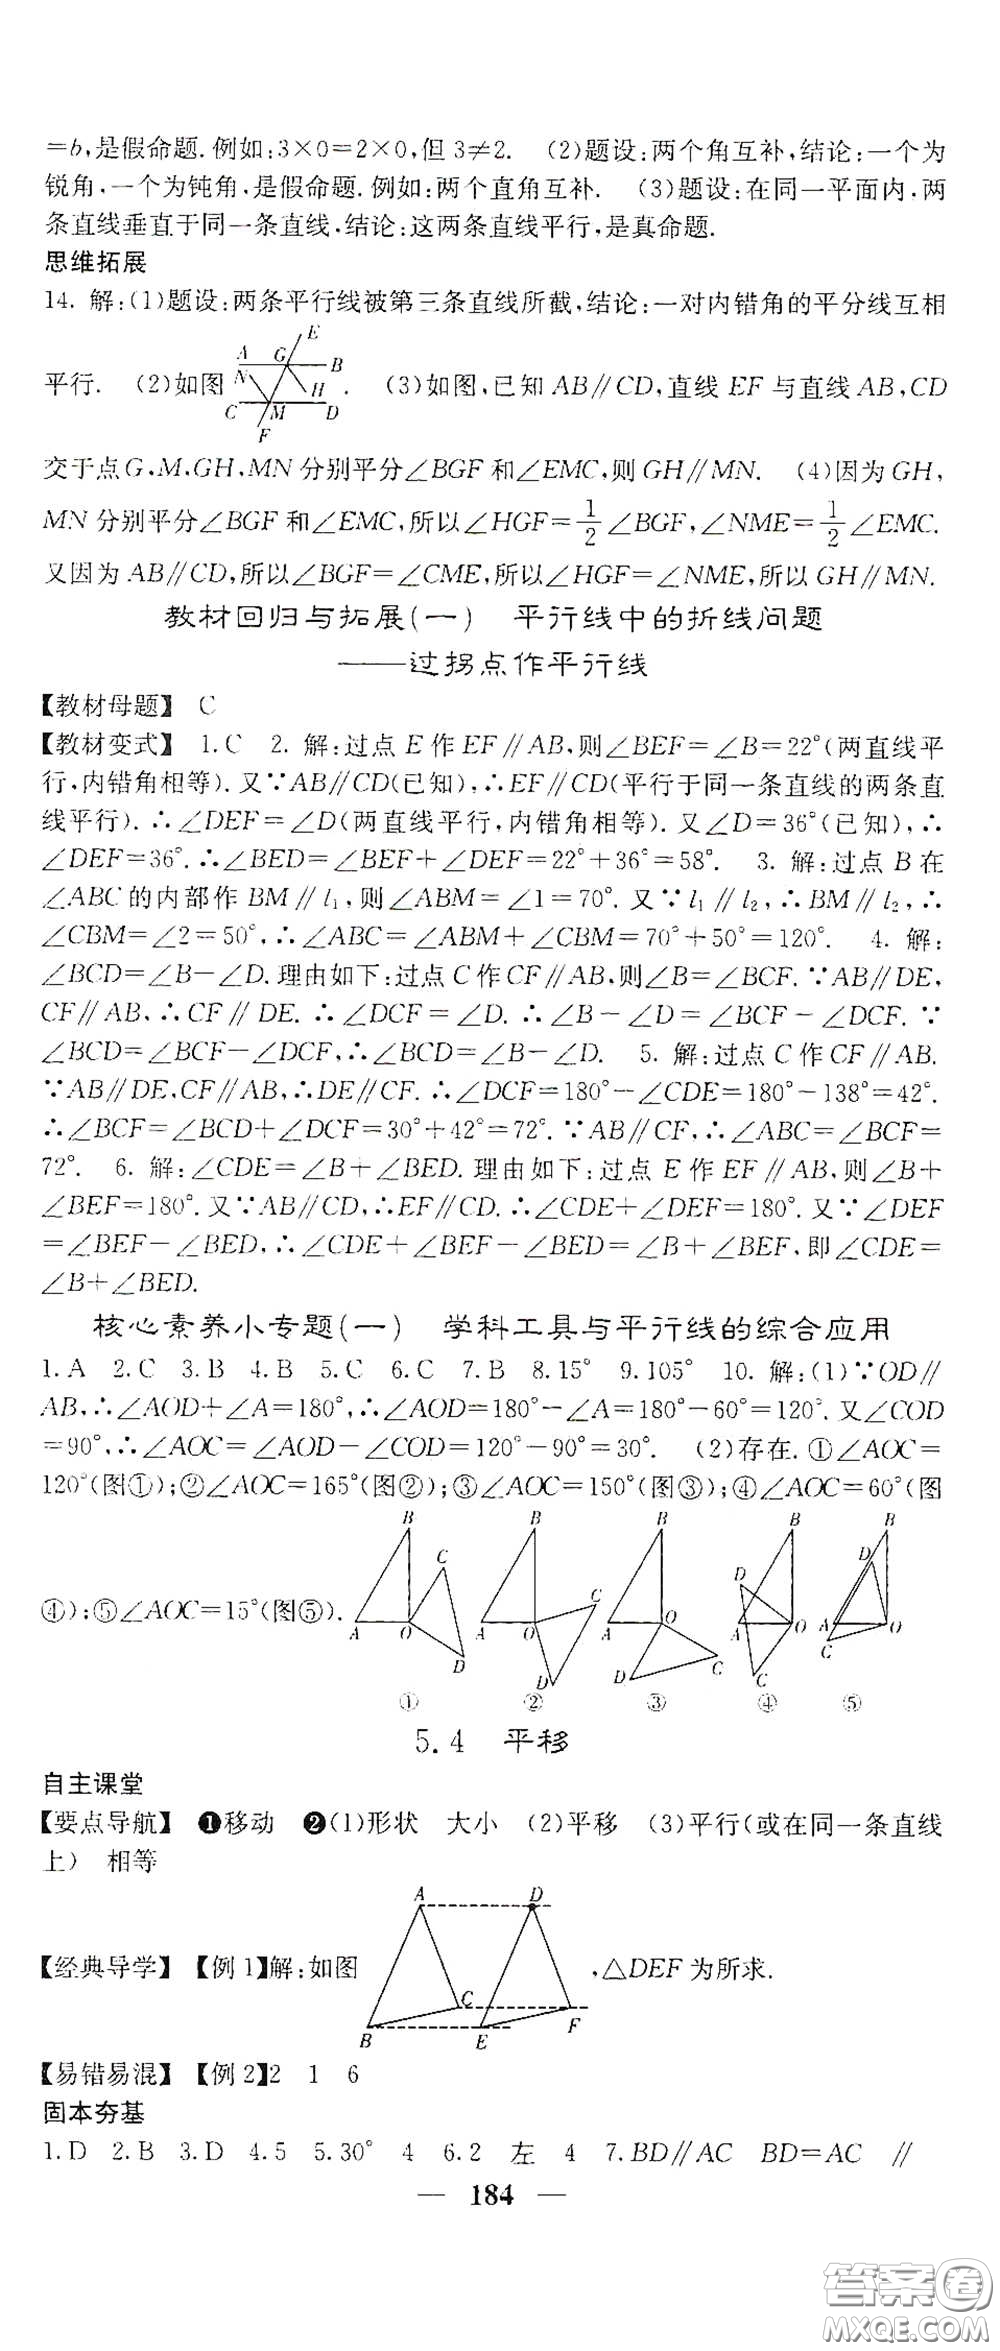 =b,是假命题.例如:3×0=2×0,但 3≠2. (2)题设:两个角互补,结论:一个为
锐角,一个为钝角,是假命题.例如:两个直角互补. (3)题设:在同一平面内,两
条直线垂直于同一条直线,结论:这两条直线平行,是真命题.
思维拓展
14. 解:(1)题设:两条平行线被第三条直线所截,结论:一对内错角的平分线互相
平行. (2)如图 A G E B N H C M D F . (3)如图,已知 AB∥CD,直线 EF 与直线 AB,CD
交于点 G,M,GH,MN 分别平分∠BGF 和∠EMC,则 GH∥MN. (4)因为 GH,
MN 分别平分∠BGF 和∠EMC,所以∠HGF=1/2∠BGF,∠NME=1/2∠EMC.
又因为 AB∥CD,所以∠BGF=∠CME,所以∠HGF=∠NME,所以 GH∥MN.
教材回归与拓展(一) 平行线中的折线问题
——过拐点作平行线
【教材母题】 C
【教材变式】 1.C 2. 解:过点 E 作 EF∥AB,则∠BEF=∠B=22°(两直线平
行,内错角相等).又∵AB∥CD(已知),∴EF∥CD(平行于同一条直线的两条直
线平行).∴∠DEF=∠D(两直线平行,内错角相等).又∠D=36°(已知),∴
∠DEF=36°.∴∠BED=∠BEF+∠DEF=22°+36°=58°. 3. 解:过点 B 在
∠ABC 的内部作 BM∥l₁,则∠ABM=∠1=70°.又∵l₁∥l₂,∴BM∥l₂,∴
∠CBM=∠2=50°,∴∠ABC=∠ABM+∠CBM=70°+50°=120°. 4. 解:
∠BCD=∠B-∠D.理由如下:过点 C 作 CF∥AB,则∠B=∠BCF.∵AB∥DE,
CF∥AB,∴CF∥DE.∴∠DCF=∠D.∴∠B-∠D=∠BCF-∠DCF.∵
∠BCD=∠BCF-∠DCF,∴∠BCD=∠B-∠D. 5. 解:过点 C 作 CF∥AB.
∵AB∥DE,CF∥AB,∴DE∥CF.∴∠DCF=180°-∠CDE=180°-138°=42°.
∴∠BCF=∠BCD+∠DCF=30°+42°=72°.∵AB∥CF,∴∠ABC=∠BCF=
72°. 6. 解:∠CDE=∠B+∠BED.理由如下:过点 E 作 EF∥AB,则∠B+
∠BEF=180°.又∵AB∥CD,∴EF∥CD.∴∠CDE+∠DEF=180°.又∵∠DEF
=∠BEF-∠BED,∴∠CDE+∠BEF-∠BED=∠B+∠BEF,即∠CDE=
∠B+∠BED.
核心素养小专题(一) 学科工具与平行线的综合应用
1.A 2.C 3.B 4.B 5.C 6.C 7.B 8.15° 9.105° 10. 解:(1)∵OD∥
AB,∴∠AOD+∠A=180°,∴∠AOD=180°-∠A=180°-60°=120°.又∠COD
=90°,∴∠AOC=∠AOD-∠COD=120°-90°=30°. (2)存在.①∠AOC=
120°(图①);②∠AOC=165°(图②);③∠AOC=150°(图③);④∠AOC=60°(图
④);⑤∠AOC=15°(图⑤).
B C A O D B C A O D B A O D C B D A O C B D A O C
① ② ③ ④ ⑤
5.4 平移
自主课堂
【要点导航】 ❶移动 ❷(1)形状 大小 (2)平移 (3)平行(或在同一条直线
上) 相等
【经典导学】 【例 1】解:如图 A D C B E F ,△DEF 为所求.
【易错易混】 【例 2】2 1 6
固本夯基
1.D 2.B 3.D 4.5 5.30° 4 6.2 左 4 7.BD∥AC BD=AC ∥
— 184 —
答案圈
MXQE.COM